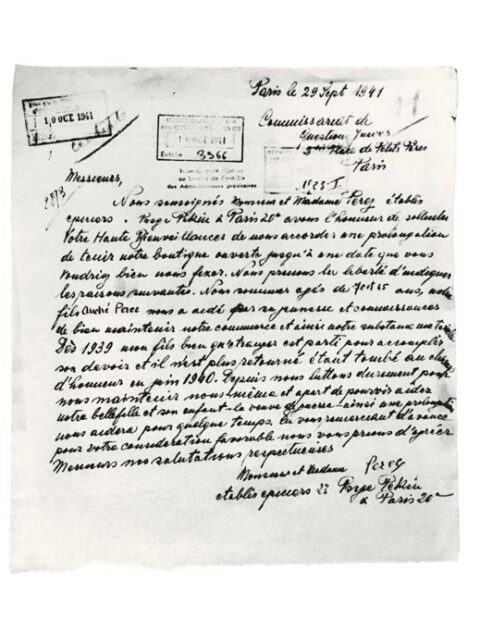 Paris le 29 Sept 1941
10 OCT. 1941
Commissariat de
Questions Juives
Place de Petits Pères
Paris
OCT 1941
Entrée 3366
des Administrateurs provisoires
2873
Messieurs,
Nous soussignés Monsieur et Madame Perec établis
epiciers Psge Pékin à Paris 20e avons l'honneur de solliciter
Votre Haute Bienveillance de nous accorder une prolongation
de tenir notre boutique ouverte jusqu'à une date que vous
voudriez bien nous fixer. Nous prenons la liberté d'indiquer
les raisons suivantes. Nous sommes agés de 70 et 65 ans, notre
fils André Perec nous a aidé par sa jeunesse et connaissances
de bien maintenir notre commerce et ainsi notre substance
Dès 1939 mon fils bien qu'etranger est parti pour accomplir
son devoir et il n'est plus retourné étant tombé au champ
d'honneur en juin 1940. Depuis nous luttons durement pour
nous maintenir nous-même et apart de pourvoir aider
notre bellefille et son enfant - la veuve de guerre - ainsi une prolongation
nous aidera pour quelque temps. En vous remerciant d'avance
pour votre consideration favorable nous vous prions d'agréer
Messieurs nos salutations respectueuses
Monsieur et Madame Perec
etablis epiciers 23 Psge Pékin
à Paris 20e